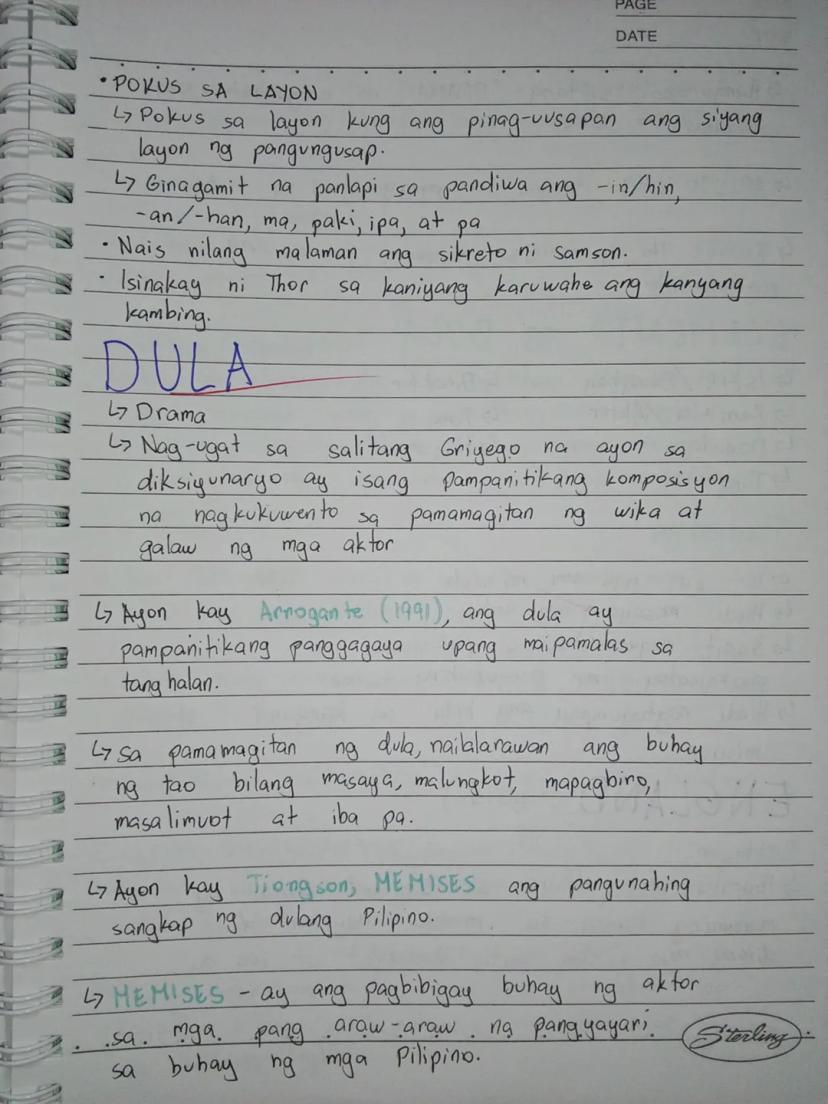 PAGE
DATE
• POKUS SA LAYON
↳ Pokus sa layon kung ang pinag-uusapan ang siyang
layon ng pangungusap.
↳ Ginagamit na panlapi sa pandiwa ang -in/hin,
-an/-han, ma, paki, ipa, at pa
• Nais nilang malaman ang sikreto ni samson.
• Isinakay ni Thor sa kaniyang karuwahe ang kanyang
kambing.
DULA
↳ Drama
↳ Nag-ugat sa salitang Griyego na ayon sa
diksiyunaryo ay isang pampanitikang komposisyon
na nagkukuwento sa pamamagitan ng wika at
galaw ng mga aktor
↳ Ayon kay Arrogante (1991), ang dula ay
pampanitikang panggagaya upang maipamalas sa
tanghalan.
↳ sa pamamagitan ng dula, nailalarawan ang buhay
ng tao bilang masaya, malungkot, mapagbiro,
masalimuot at iba pa.
↳ Ayon kay Tiongson, MEMISES ang pangunahing
sangkap ng dulang Pilipino.
↳ MEMISES - ay ang pagbibigay buhay ng aktor
sa mga pang araw-araw na pangyayari
sa buhay ng mga Pilipino.
Sterling